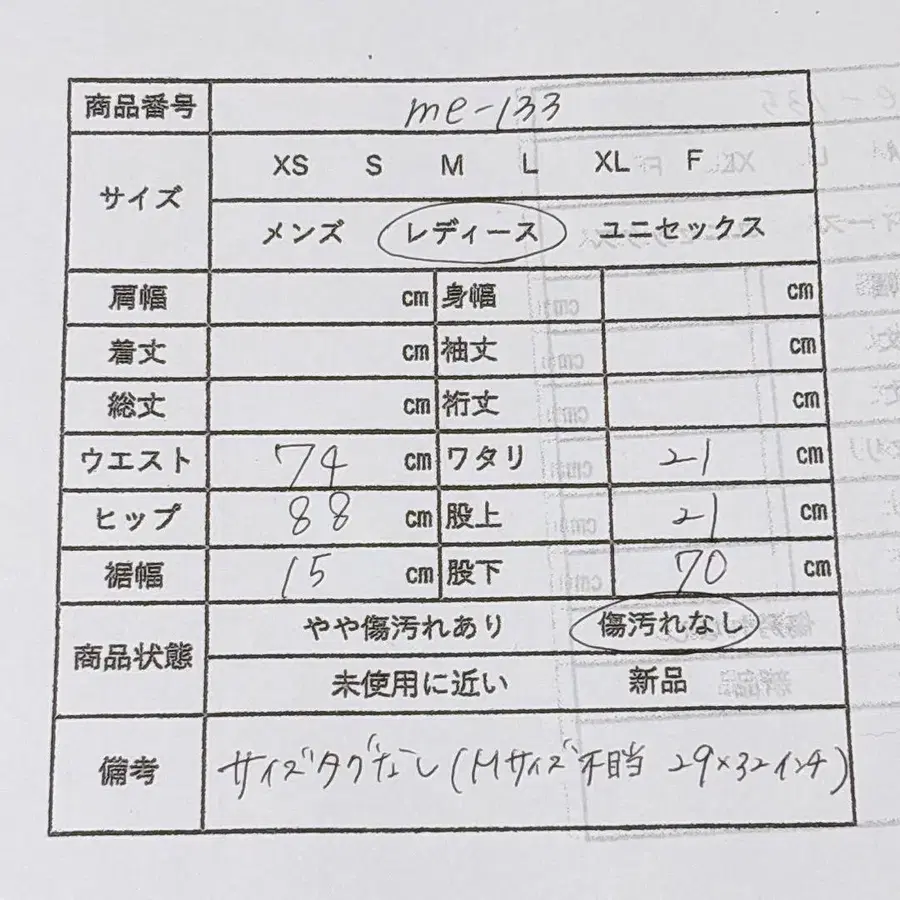 商品番号 me-133
サイズ XS S M L XL F
メンズ レディース ユニセックス
肩幅 cm 身幅 cm
着丈 cm 袖丈 cm
総丈 cm 裄丈 cm
ウエスト 74 cm ワタリ 21 cm
ヒップ 88 cm 股上 21 cm
裾幅 15 cm 股下 70 cm
商品状態 やや傷汚れあり 傷汚れなし
未使用に近い 新品
備考 サイズタグなし(Mサイズ相当 29×32インチ)